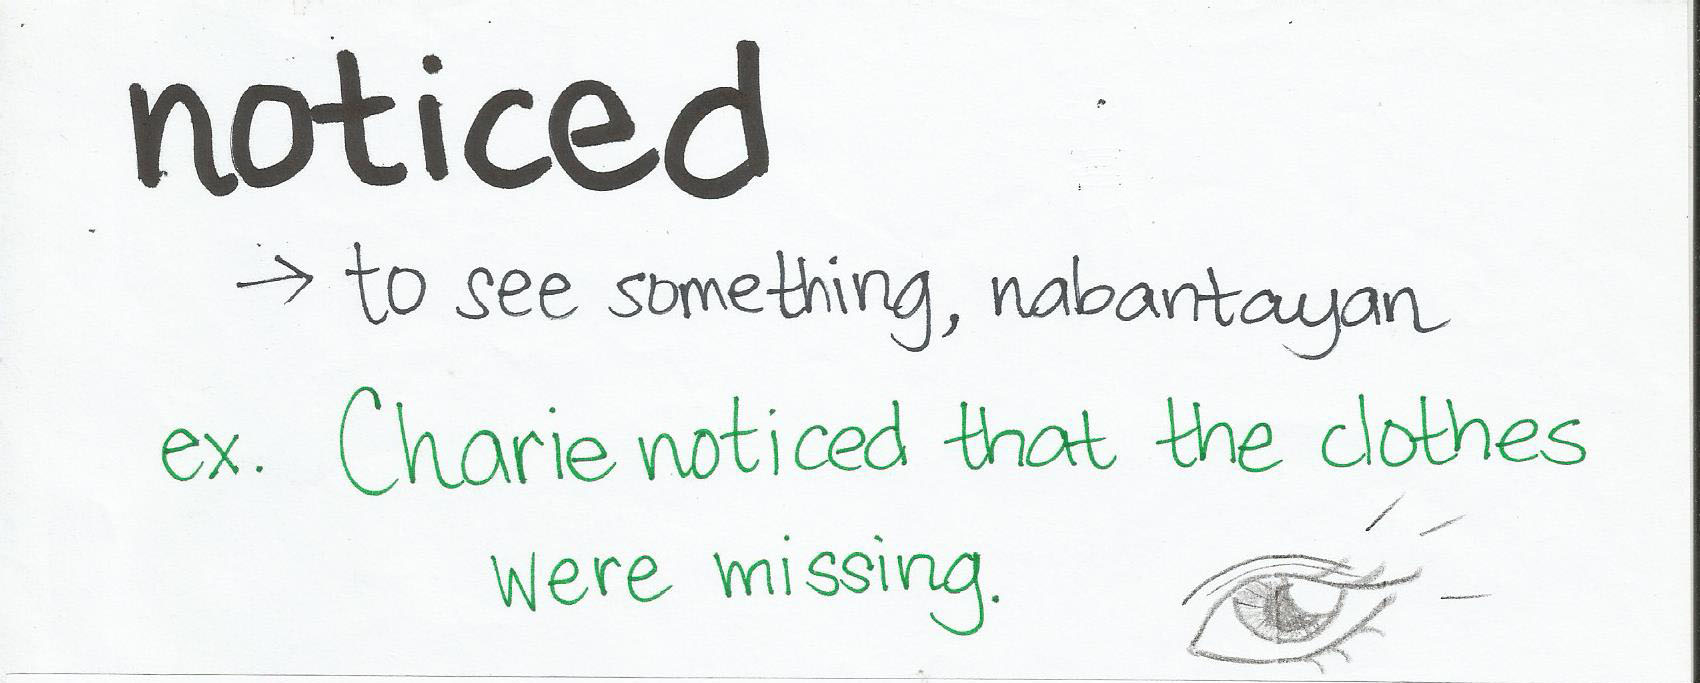 noticed
→ to see something, nabantayan
ex. Charie noticed that the clothes
were missing.